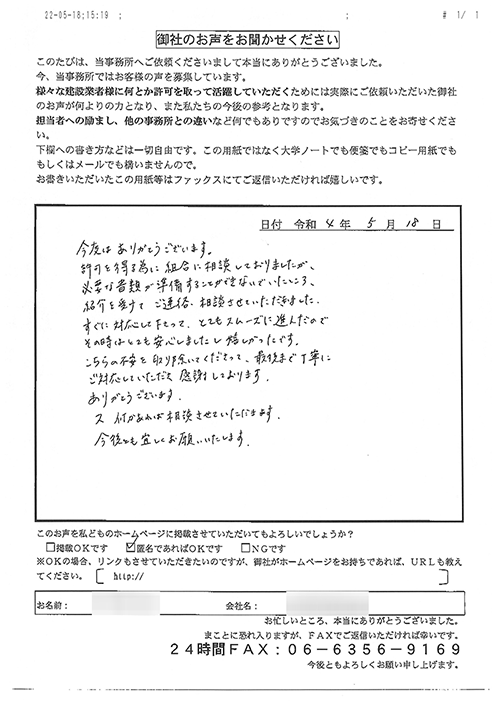 22-05-18;15:19 ; ; # 1/ 1
御社のお声をお聞かせください
このたびは、当事務所へご依頼くださいまして本当にありがとうございました。
今、当事務所ではお客様の声を募集しています。
様々な建設業者様に何とか許可を取って活躍していただくためには実際にご依頼いただいた御社
のお声が何よりの力となり、また私たちの今後の参考となります。
担当者への励まし、他の事務所との違いなど何でもありですのでお気づきのことをお寄せくださ
い。
下欄への書き方などは一切自由です。この用紙ではなく大学ノートでも便箋でもコピー用紙でも
もしくはメールでも構いませんので。
お書きいただいたこの用紙等はファックスにてご返信いただければ嬉しいです。
日付 令和 4 年 5 月 18 日
今度は ありがとうございます。
許可を得る為に 組合に相談しておりましたが、
必要な書類が準備することができないでいたところ、
紹介を受けて ご連絡、相談させていただきました。
すぐに対応して下さって、とてもスムーズに進んだので
その時はとても安心しましたし嬉しかったです。
こちらの不安を取り除いてくださって、最後まで丁寧に
ご対応していただき 感謝しております。
ありがとうございます。
又 何かあれば相談させていただきます。
今後とも宜しくお願いいたします。
このお声を私どものホームページに掲載させていただいてもよろしいでしょうか？
□掲載OKです ☑匿名であればOKです □NGです
※OKの場合、リンクもさせていただきたいのですが、御社がホームページをお持ちであれば、URLも教え
てください。 [ http:// ]
お名前： 会社名：
お忙しいところ、本当にありがとうございました。
まことに恐れ入りますが、FAXでご返信いただければ幸いです。
24時間FAX：06-6356-9169
今後ともよろしくお願い申し上げます。